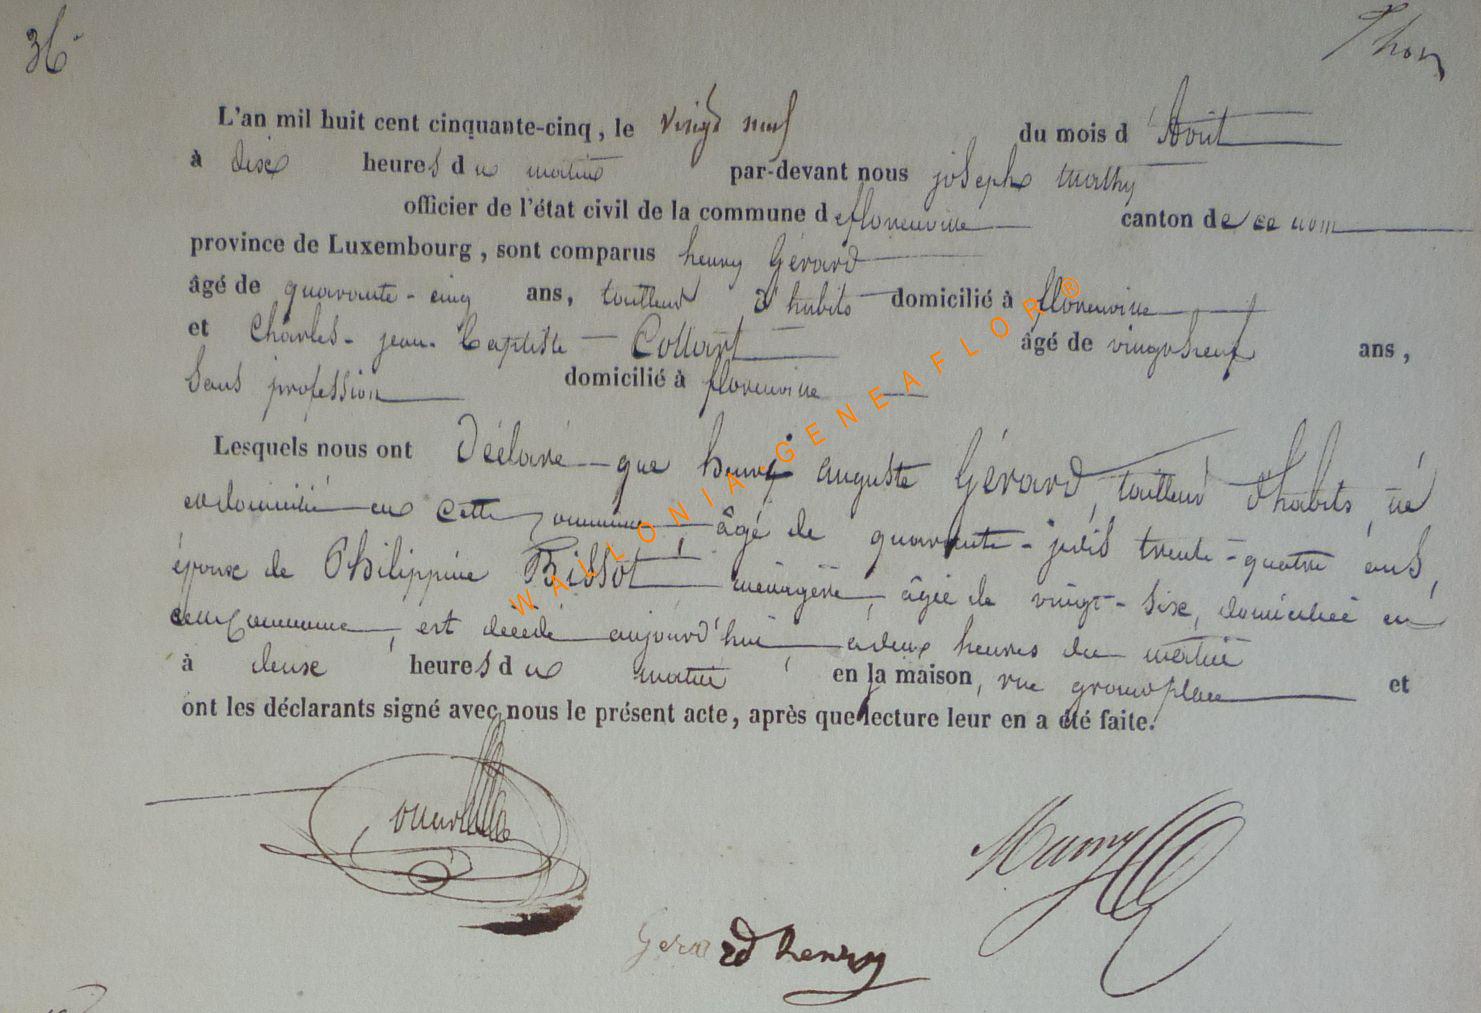 36.
Thon
L'an mil huit cent cinquante-cinq, le vingt neuf du mois d'Aout
à dix heures du matin par-devant nous joseph Mathy
officier de l'état civil de la commune de florenville canton de ce nom
province de Luxembourg, sont comparus henry Gérard
âgé de quarante-cinq ans, tailleur d'habits domicilié à florenville
et Charles-jean-Baptiste Collart âgé de ans,
sans profession domicilié à florenville
Lesquels nous ont déclaré que henry auguste Gérard, tailleur d'habits, né
et domicilié en cette commune âgé de trente-quatre ans,
époux de Philippine Bissot ménagère, âgée de vingt-six, domiciliée en
cette commune, est décédé aujourd'hui, à deux heures du matin
à deux heures du matin, en la maison, rue grand place et
ont les déclarants signé avec nous le présent acte, après que lecture leur en a été faite.
Gerard henry
WALLONIA-GENEAFLOR®